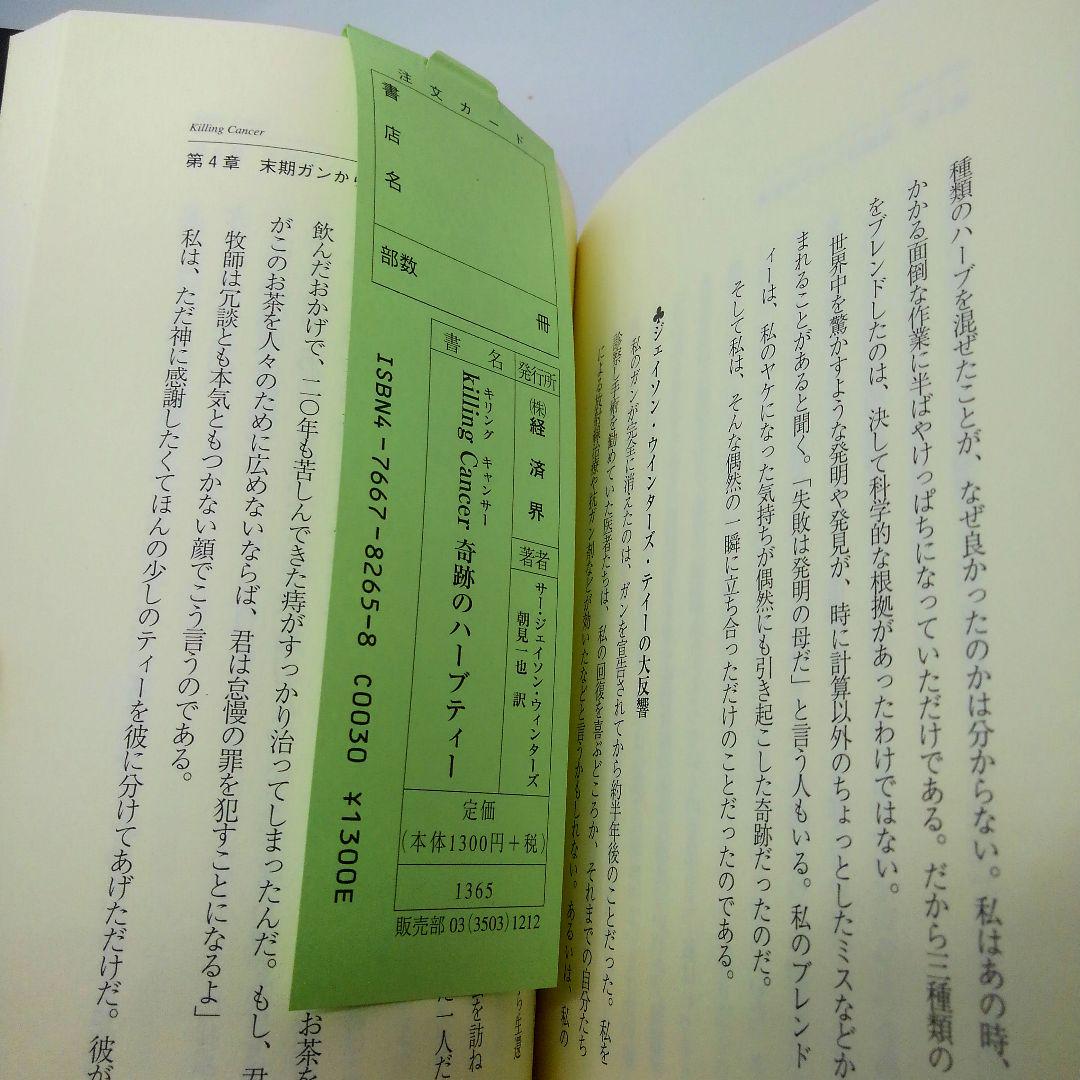 種類のハーブを混ぜたことが、なぜ良かったのかは分からない。私はあの時、
かかる面倒な作業に半ばやけっぱちになっていただけである。だから三種類の
をブレンドしたのは、決して科学的な根拠があったわけではない。
世界中を驚かすような発明や発見が、時に計算以外のちょっとしたミスなどか
まれることがあると聞く。「失敗は発明の母だ」と言う人もいる。私のブレンド
ィーは、私のヤケになった気持ちが偶然にも引き起こした奇跡だったのだ。
そして私は、そんな偶然の一瞬に立ち合っただけのことだったのである。
♣ジェイソン・ウインターズ・ティーの大反響
私のガンが完全に消えたのは、ガンを宣告されてから約半年後のことだった。私を
診察し手術を勧めていた医者たちは、私の回復を喜ぶどころか、それまでの自分たち
による放射線治療や抗ガン剤などが効いたなどと言うかもしれない。あるいは、私の
注文カード
書店名
部数
冊
発行所
㈱経済界
著者
サー・ジェイソン・ウィンターズ
朝見一也 訳
書名
キリング キャンサー
killing Cancer 奇跡のハーブティー
定価
(本体1300円+税)
1365
販売部 03(3503)1212
ISBN4-7667-8265-8 C0030 ¥1300E
Killing Cancer
第4章 末期ガンから
を訪ね
た一人だ
お茶を
飲んだおかげで、二〇年も苦しんできた痔がすっかり治ってしまったんだ。もし、君
がこのお茶を人々のために広めないならば、君は怠慢の罪を犯すことになるよ」
牧師は冗談とも本気ともつかない顔でこう言うのである。
私は、ただ神に感謝したくてほんの少しのティーを彼に分けてあげただけだ。彼が